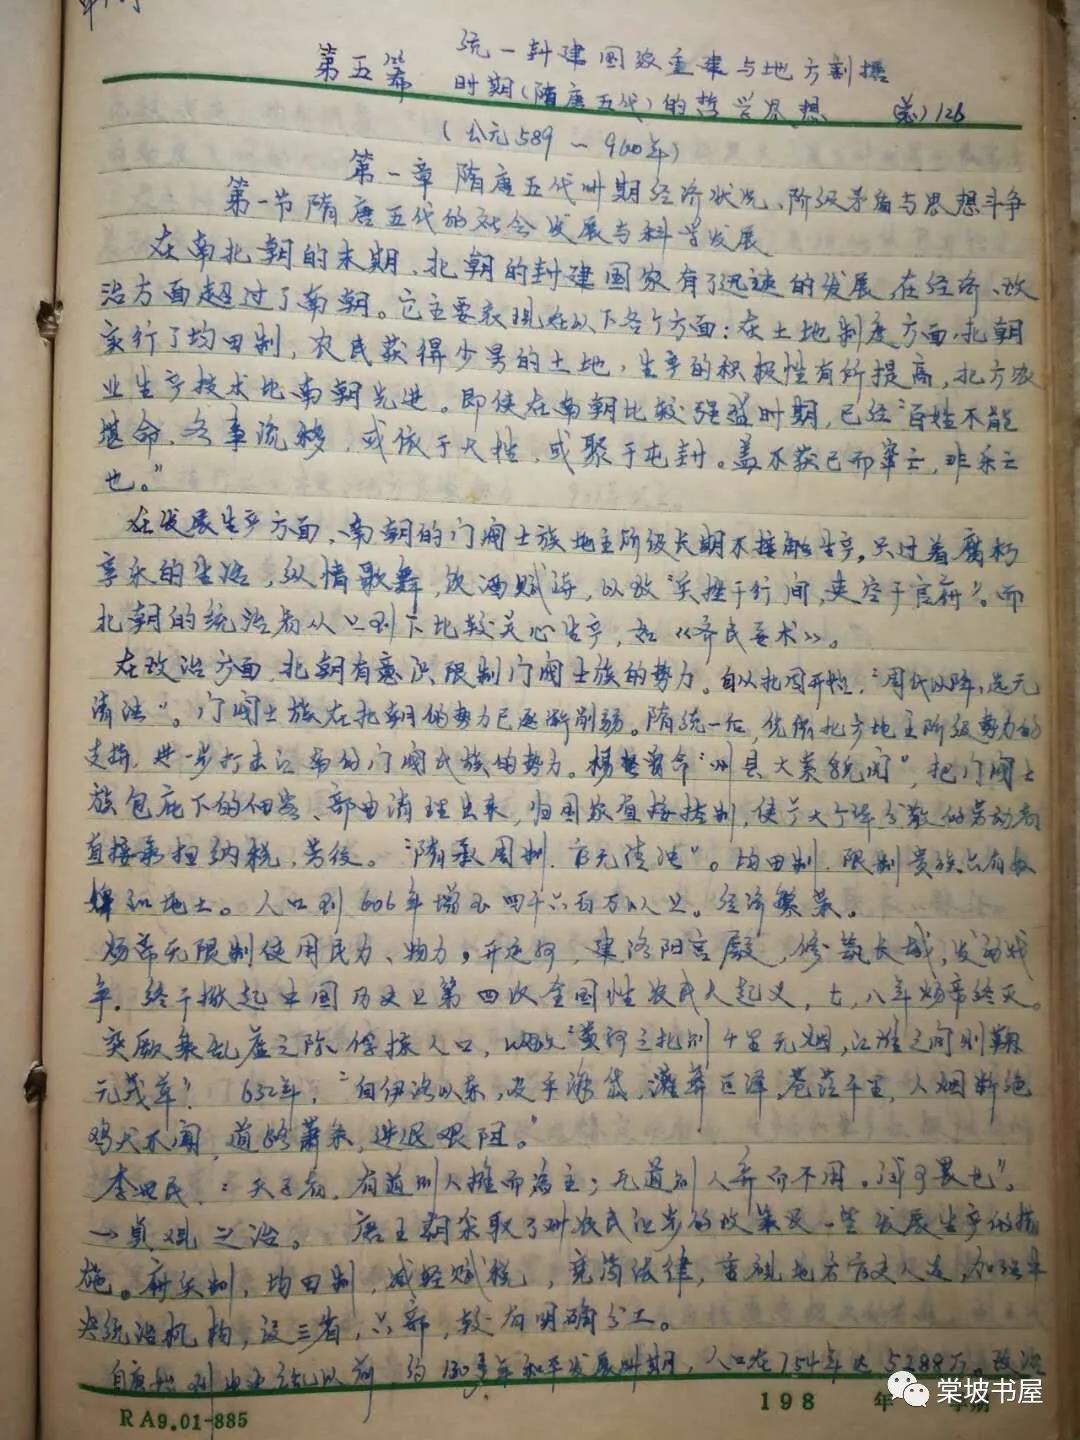 统一封建国家重建与地方割据
第五篇 时期(隋唐五代)的哲学思想 (总)126
(公元589~960年)
第一章 隋唐五代时期经济状况、阶级矛盾与思想斗争
第一节 隋唐五代的社会发展与科学发展
在南北朝的末期,北朝的封建国家有了迅速的发展,在经济、政
治方面超过了南朝。它主要表现在以下各个方面:在土地制度方面,北朝
实行了均田制,农民获得少量的土地,生产的积极性有所提高,北方农
业生产技术比南朝先进。即使在南朝比较强盛时期,已经“百姓不能
堪命,各事流移,或依于大姓,或聚于屯封。盖不获已而窜亡,非乐亡
也。”
在发展生产方面,南朝的门阀士族地主阶级长期不接触生产,只过着腐朽
享乐的生活,纵情歌舞,饮酒赋诗,以致“关挫于行间,夹空于官府”。而
北朝的统治者从上到下比较关心生产,如《齐民要术》。
在政治方面,北朝有意识限制门阀士族的势力。自从北周开始,“周代以降,选无
清浊”。门阀士族在北朝的势力已逐渐削弱。隋统一后,依靠北方地主阶级势力的
支持,进一步打击江南的门阀氏族的势力。杨坚曾命“州县大索貌阅”,把门阀士
族包庇下的佃客、部曲清理出来,归国家直接控制,使广大个体分散的劳动者
直接承担纳税、劳役。“隋承周制,官无清浊”。均田制,限制贵族占有奴
婢和地土。人口到606年增至四千六百万以上。经济繁荣。
炀帝无限制使用民力、物力,开运河,建洛阳宫殿,修筑长城,发动战
争。终于掀起中国历史上第四次全国性农民大起义,七、八年炀帝终灭。
突厥乘乱虚之际俘掠人口,以致“黄河之北则千里无烟,江淮之间则鞠
为茂草”。 632年,“自伊洛以东,及乎海岱,灌莽巨泽,苍茫千里,人烟断绝
鸡犬不闻,道路萧条,进退艰阻。”
李世民:“天子者,有道则人推而为主;无道则人弃而不用,诚可畏也”。
→贞观之治。 唐王朝采取了对农民让步的政策及一些发展生产的措
施。府兵制,均田制,减轻赋税,宽简法律,重视地方官吏人选,加强中
央统治机构,设三省,六部,较有明确分工。
自唐始到安史之乱以前,约130多年和平发展时期,人口在754年达5288万。政治
RA9.01-885
198 年 学期
棠坡书屋